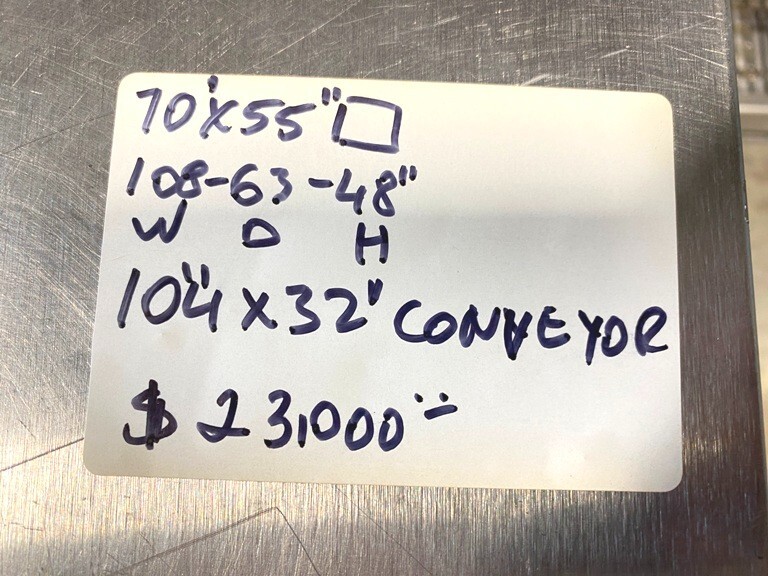 70"x55"
108-63-48"
W D H
10"4 x 32" CONVEYOR
$ 23,000